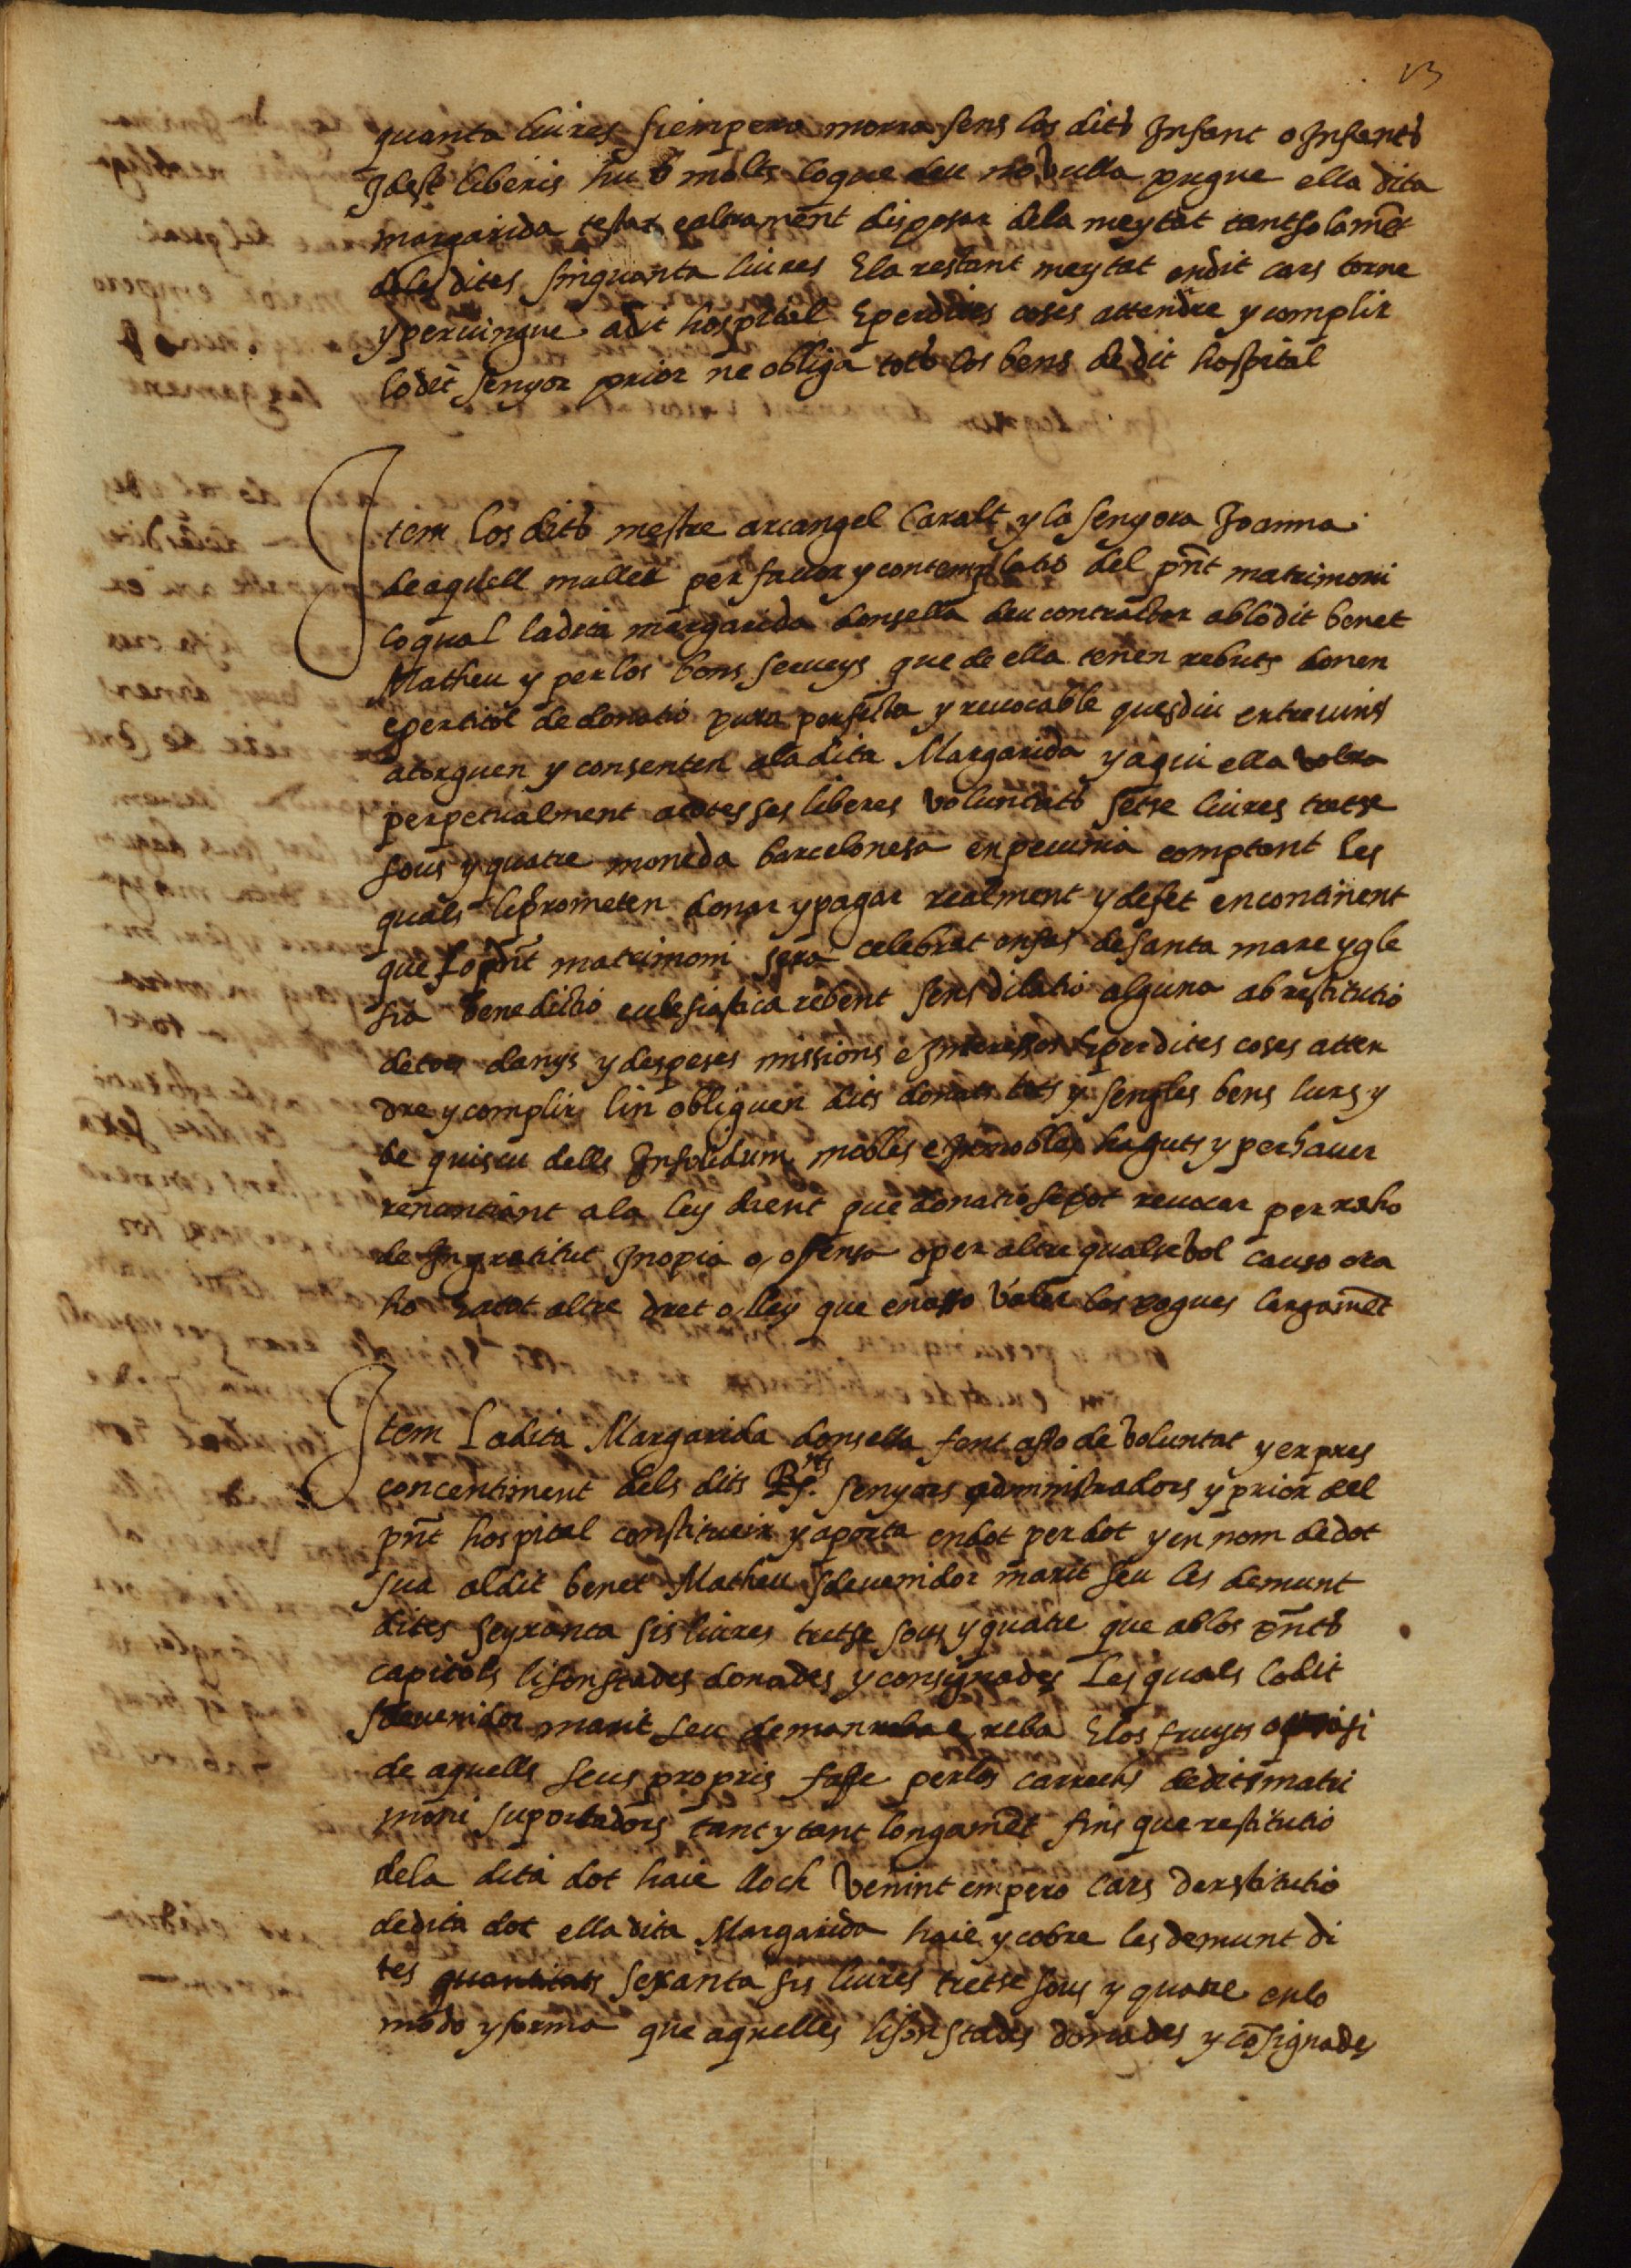 13
quanta liures siempero morra sens los dits Infant o Infants
Idest liberis hu o molts loque deu no vulla pugue ella dita
margarida testar ealtrament disposar dela meytat tantsolamēt
deles dites sinquanta liures Ela restant meytat endit cars torne
y peruingue adit hospital Eperdites coses attendre y complir
lodit senyor prior ne obliga tots los bens de dit hospital
Item los dits mestre arcangel Caralt y la senyora Joanna
de aquell muller per fauor y contemplatio del pñt matrimoni
loqual ladita margarida donsella deu contractar ablodit benet
Matheu y per los bons serueys que de ella tenen rebuts donen
epertitol de donatio pura perfecta y reuocable quesdiu entreuius
atorguen y consenten aladita Margarida y aqui ella volra
perpetualment atotes ses liberes voluntats setse liures tretse
sous y quatre moneda barcelonesa enpecunia comptant les
quals li prometen donar y pagar realment y defet encontinent
que lo pñt matrimoni sera celebrat enfas de santa mare ygle
sia benedictio ecclesiastica rebent sens dilatio alguna ab restitutio
detots danys y despeses missions e Interessos Eperdites coses atten
dre y complir lin obliguen dits donars tots y sengles bens lurs y
de quiscu dells Insolidum mobles e Inmobles haguts y perhauer
renuntiant a la ley dient que donatio se pot reuocar per raho
de Ingratitut Inopia o offensa o per altre qualseVol causa o ra
ho Eatot altre dret o lley que enasso valer los pogues largamēt
Item Ladita Margarida donsella fent asso de voluntat y expres
concentiment dels dits Rs.nts senyors administradors y prior del
pñt hospital constitueix y aporta endot per dot y en nom dedot
sua aldit benet Matheu sdeuenidor marit seu les demunt
dites seyxanta sis liures tretse sous y quatre que ablos pñts
capitols lisonstades donades y consignades Les quals lodit
sdeuenidor marit seu deman e reba Elos fruyts
de aquells seus propris fasse perlos carrechs dedit matri
moni suportadors tant y tant longamēt fins que restitutio
dela dita dot haie lloch Venint empero cars derestitutio
dedita dot ella dita Margarida haie y cobre les demunt di
tes quantitats sexanta sis liures tretse sous y quatre enlo
modo y forma que aquelles lisonstades donades y cōsignades